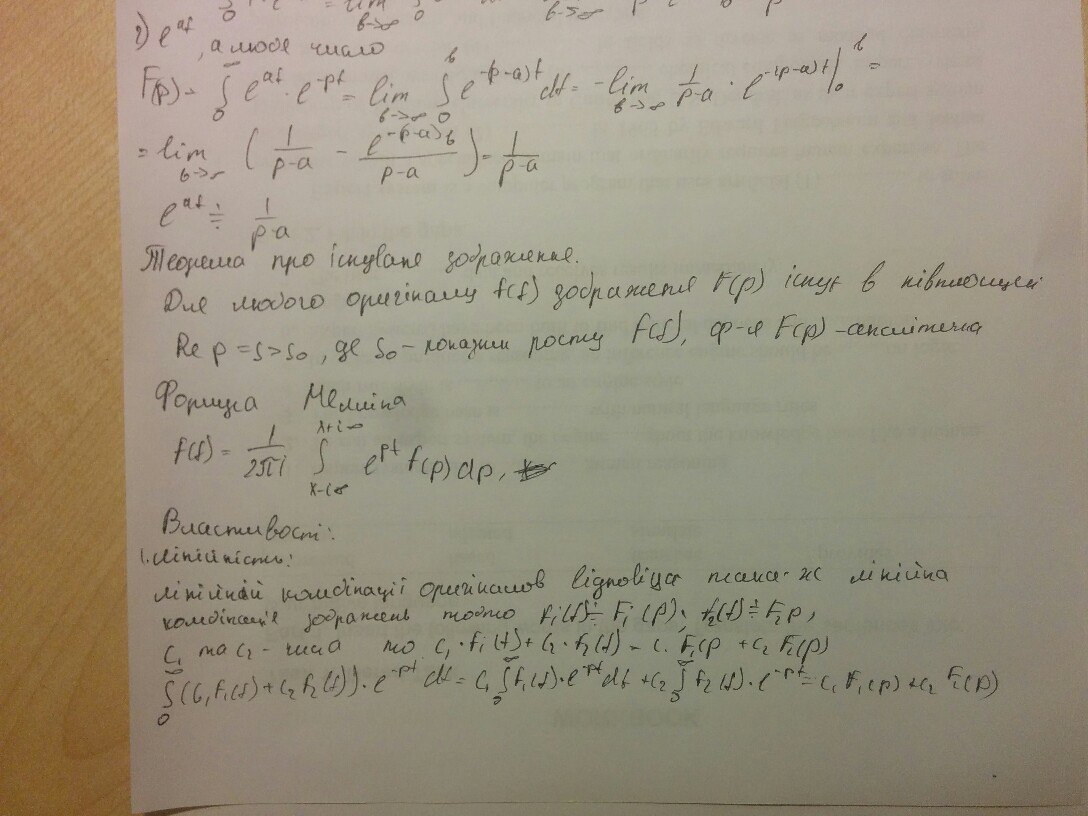 2) e^{at}, a любе число
F(p) = ∫_0^∞ e^{at} · e^{-pt} = lim_{b→∞} ∫_0^b e^{-(p-a)t} dt = - lim_{b→∞} 1/(p-a) · e^{-(p-a)t} |_0^b =
= lim_{b→∞} ( 1/(p-a) - e^{-(p-a)b}/(p-a) ) = 1/(p-a)
e^{at} ≑ 1/(p-a)
Теорема про існуване зображення.
Для любого оригіналу f(t) зображення F(p) існує в півплощині
Re p = s > s₀, де s₀ - показник росту f(t), ф-я F(p) - аналітична
Формула Мелліна
f(t) = 1/(2πi) ∫_{x-i∞}^{x+i∞} e^{pt} f(p) dp,
Властивості:
1. Лінійність:
лінійній комбінації оригіналов відповіда така ж лінійна
комбінація зображень тобто f₁(t) ≑ F₁(p); f₂(t) ≑ F₂p,
C₁ та C₂ - числа то C₁·f₁(t) + C₂·f₂(t) = C₁ F₁(p + C₂ F₂(p)
∫_0^∞ (C₁f₁(t) + C₂f₂(t)) · e^{-pt} dt = C₁ ∫_0^∞ f₁(t) · e^{-pt} dt + C₂ ∫_0^∞ f₂(t) · e^{-pt} = C₁ F₁(p) + C₂ F₂(p)